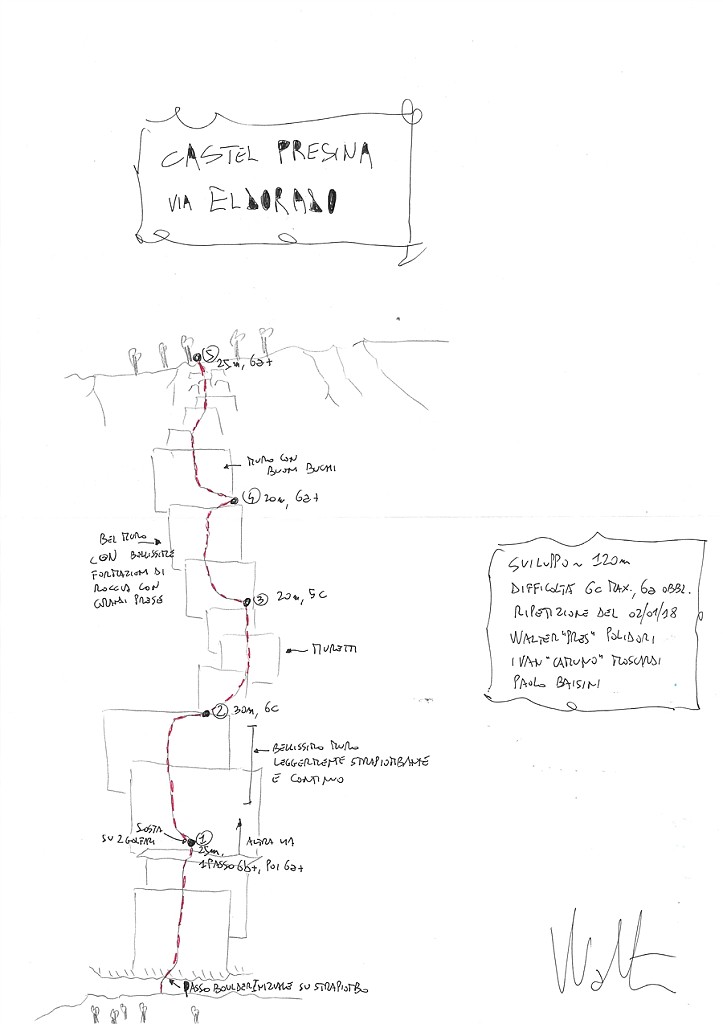 CASTEL PRESINA
VIA ELDORADO
5 25m, 6a+
MURO CON
BUONI BUCHI
4 20m, 6a+
BEL MURO
CON BELLISSIME
FORMAZIONI DI
ROCCIA CON
GRANDI PRESE
3 20m, 5C
MURETTI
2 30m, 6C
BELLISSIMO MURO
LEGGERMENTE STRAPIOMBANTE
E CONTINUO
SOSTA
SU 2 GOLFARI
1
25m,
1 PASSO 6b+, POI 6a+
ALTRA VIA
PASSO BOULDER INIZIALE SU STRAPIOMBO
SVILUPPO ~ 120m
DIFFICOLTÀ 6C MAX., 6a OBBL.
RIPETIZIONE DEL 02/01/18
WALTER "PRES" POLIDORI
IVAN MOSCARDI
PAOLO BAISINI